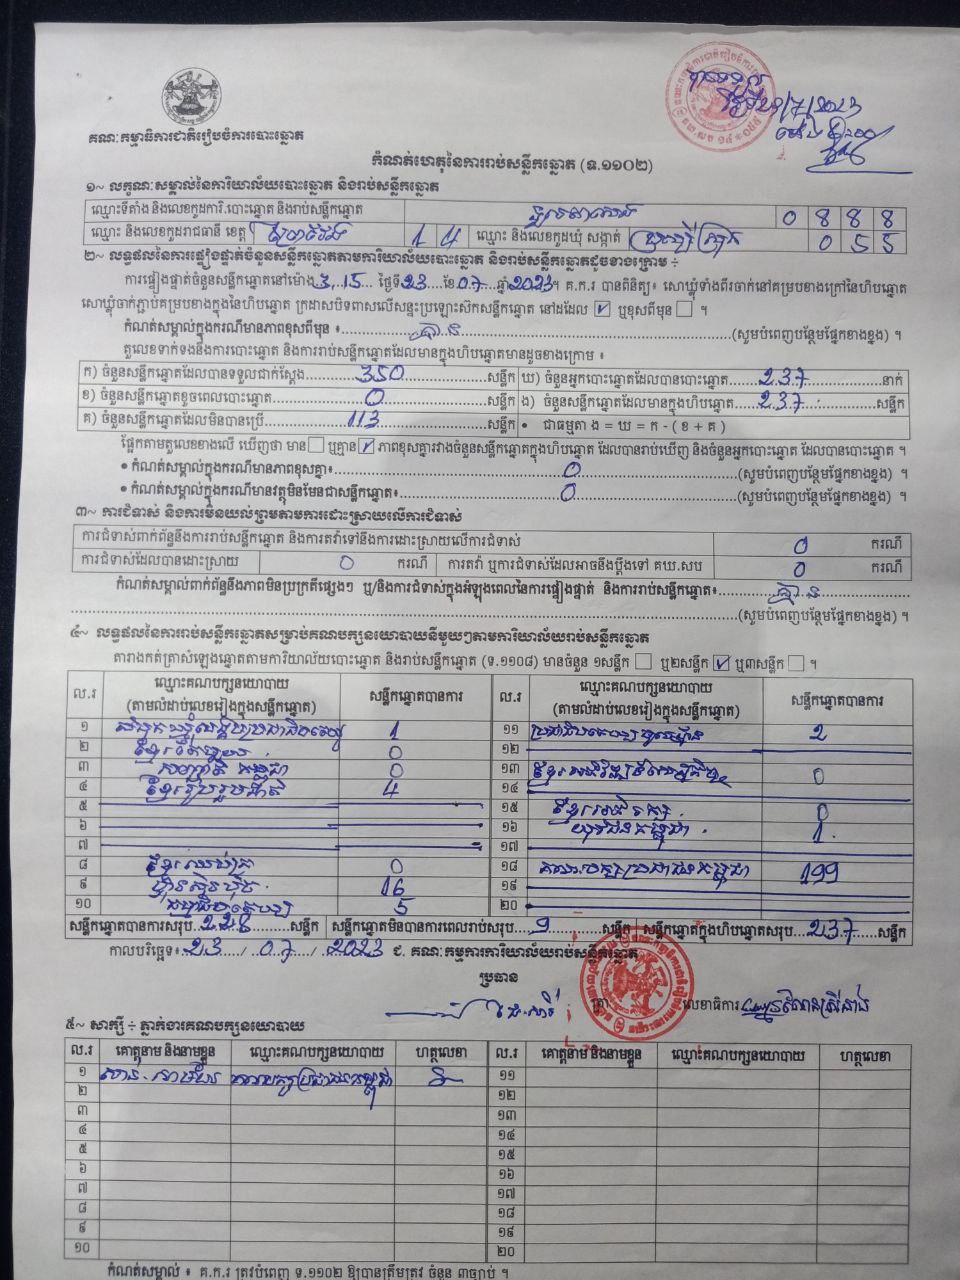 គណៈកម្មាធិការជាតិរៀបចំការបោះឆ្នោត
កំណត់ហេតុនៃការរាប់សន្លឹកឆ្នោត (ទ.១១០២)
១~ លក្ខណៈសម្គាល់នៃការិយាល័យបោះឆ្នោត និងរាប់សន្លឹកឆ្នោត
ឈ្មោះទីតាំង និងលេខកូដការិ.បោះឆ្នោត និងរាប់សន្លឹកឆ្នោត 0 8 8 8
ឈ្មោះ និងលេខកូដរាជធានី ខេត្ត ព្រៃវែង 1 4 ឈ្មោះ និងលេខកូដឃុំ សង្កាត់ 0 5 5
២~ លទ្ធផលនៃការផ្ទៀងផ្ទាត់ចំនួនសន្លឹកឆ្នោតតាមការិយាល័យបោះឆ្នោត និងរាប់សន្លឹកឆ្នោតដូចខាងក្រោម ÷
ការផ្ទៀងផ្ទាត់ចំនួនសន្លឹកឆ្នោតនៅម៉ោង 3,15 ថ្ងៃទី 23 ខែ 07 ឆ្នាំ 2023។ គ.ក.រ បានពិនិត្យ៖ សោឃ្មុំទាំងពីរចាក់នៅគម្របខាងក្រៅនៃហិបឆ្នោត
សោឃ្មុំចាក់ភ្ជាប់គម្របខាងក្នុងនៃហិបឆ្នោត ក្រដាសបិទពាសលើសន្ទះប្រឡោះស៊កសន្លឹកឆ្នោត នៅដដែល ✓ ឬខុសពីមុន ។
កំណត់សម្គាល់ក្នុងករណីមានភាពខុសពីមុន ៖ គ្មាន (សូមបំពេញបន្ថែមផ្នែកខាងខ្នង) ។
តួលេខទាក់ទងនឹងការបោះឆ្នោត និងការរាប់សន្លឹកឆ្នោតដែលមានក្នុងហិបឆ្នោតមានដូចខាងក្រោម ៖
ក) ចំនួនសន្លឹកឆ្នោតដែលបានទទួលជាក់ស្តែង 350 សន្លឹក ឃ) ចំនួនអ្នកបោះឆ្នោតដែលបានបោះឆ្នោត 237 នាក់
ខ) ចំនួនសន្លឹកឆ្នោតខូចពេលបោះឆ្នោត 0 សន្លឹក ង) ចំនួនសន្លឹកឆ្នោតដែលមានក្នុងហិបឆ្នោត 237 សន្លឹក
គ) ចំនួនសន្លឹកឆ្នោតដែលមិនបានប្រើ 113 សន្លឹក • ជាធម្មតា ង = ឃ = ក - ( ខ + គ )
ផ្អែកតាមតួលេខខាងលើ ឃើញថា មាន ឬគ្មាន ✓ ភាពខុសគ្នារវាងចំនួនសន្លឹកឆ្នោតក្នុងហិបឆ្នោត ដែលបានរាប់ឃើញ និងចំនួនអ្នកបោះឆ្នោត ដែលបានបោះឆ្នោត ។
• កំណត់សម្គាល់ក្នុងករណីមានភាពខុសគ្នា៖ 0 (សូមបំពេញបន្ថែមផ្នែកខាងខ្នង) ។
• កំណត់សម្គាល់ក្នុងករណីមានវត្ថុមិនមែនជាសន្លឹកឆ្នោត៖ 0 (សូមបំពេញបន្ថែមផ្នែកខាងខ្នង) ។
៣~ ការជំទាស់ និងការមិនយល់ព្រមតាមការដោះស្រាយលើការជំទាស់
ការជំទាស់ពាក់ព័ន្ធនឹងការរាប់សន្លឹកឆ្នោត និងការតវ៉ាទៅនឹងការដោះស្រាយលើការជំទាស់ 0 ករណី
ការជំទាស់ដែលបានដោះស្រាយ 0 ករណី ការតវ៉ា ឬការជំទាស់ដែលអាចនឹងប្តឹងទៅ គឃ.សប 0 ករណី
កំណត់សម្គាល់ពាក់ព័ន្ធនឹងភាពមិនប្រក្រតីផ្សេងៗ ឬ/និងការជំទាស់ក្នុងអំឡុងពេលនៃការផ្ទៀងផ្ទាត់ និងការរាប់សន្លឹកឆ្នោត៖ គ្មាន
(សូមបំពេញបន្ថែមផ្នែកខាងខ្នង) ។
៤~ លទ្ធផលនៃការរាប់សន្លឹកឆ្នោតសម្រាប់គណបក្សនយោបាយនីមួយៗតាមការិយាល័យរាប់សន្លឹកឆ្នោត
តារាងកត់ត្រាសំឡេងឆ្នោតតាមការិយាល័យបោះឆ្នោត និងរាប់សន្លឹកឆ្នោត (ទ.១១០៨) មានចំនួន ១សន្លឹក ឬ២សន្លឹក ✓ ឬ៣សន្លឹក ។
ល.រ ឈ្មោះគណបក្សនយោបាយ (តាមលំដាប់លេខរៀងក្នុងសន្លឹកឆ្នោត) សន្លឹកឆ្នោតបានការ ល.រ ឈ្មោះគណបក្សនយោបាយ (តាមលំដាប់លេខរៀងក្នុងសន្លឹកឆ្នោត) សន្លឹកឆ្នោតបានការ
១ សំបុកឃ្មុំសង្គមប្រជាធិបតេយ្យ 1 ១១ 2
២ 0 ១២
៣ សញ្ជាតិ កម្ពុជា 0 ១៣ 0
៤ ខ្មែររួបរួមជាតិ 4 ១៤
៥ ១៥ ខ្មែរអភិរក្ស 0
៦ ១៦ យុវជនកម្ពុជា 1
៧ ១៧
៨ ខ្មែរឈប់ក្រ 0 ១៨ គណបក្សប្រជាជនកម្ពុជា 199
៩ ហ៊្វុនស៊ិនប៉ិច 16 ១៩
១០ 5 ២០
សន្លឹកឆ្នោតបានការសរុប 228 សន្លឹក សន្លឹកឆ្នោតមិនបានការពេលរាប់សរុប 9 សន្លឹក សន្លឹកឆ្នោតក្នុងហិបឆ្នោតសរុប 237 សន្លឹក
កាលបរិច្ឆេទ៖ 23 / 07 / 2023 ជ. គណៈកម្មការការិយាល័យរាប់សន្លឹកឆ្នោត
ប្រធាន
លេខាធិការ
៥~ សាក្សី ÷ ភ្នាក់ងារគណបក្សនយោបាយ
ល.រ គោត្តនាម និងនាមខ្លួន ឈ្មោះគណបក្សនយោបាយ ហត្ថលេខា ល.រ គោត្តនាម និងនាមខ្លួន ឈ្មោះគណបក្សនយោបាយ ហត្ថលេខា
១ គណបក្សប្រជាជនកម្ពុជា ១១
២ ១២
៣ ១៣
៤ ១៤
៥ ១៥
៦ ១៦
៧ ១៧
៨ ១៨
៩ ១៩
១០ ២០
កំណត់សម្គាល់ ៖ គ.ក.រ ត្រូវបំពេញ ទ.១១០២ ឱ្យបានត្រឹមត្រូវ ចំនួន ៣ច្បាប់ ។